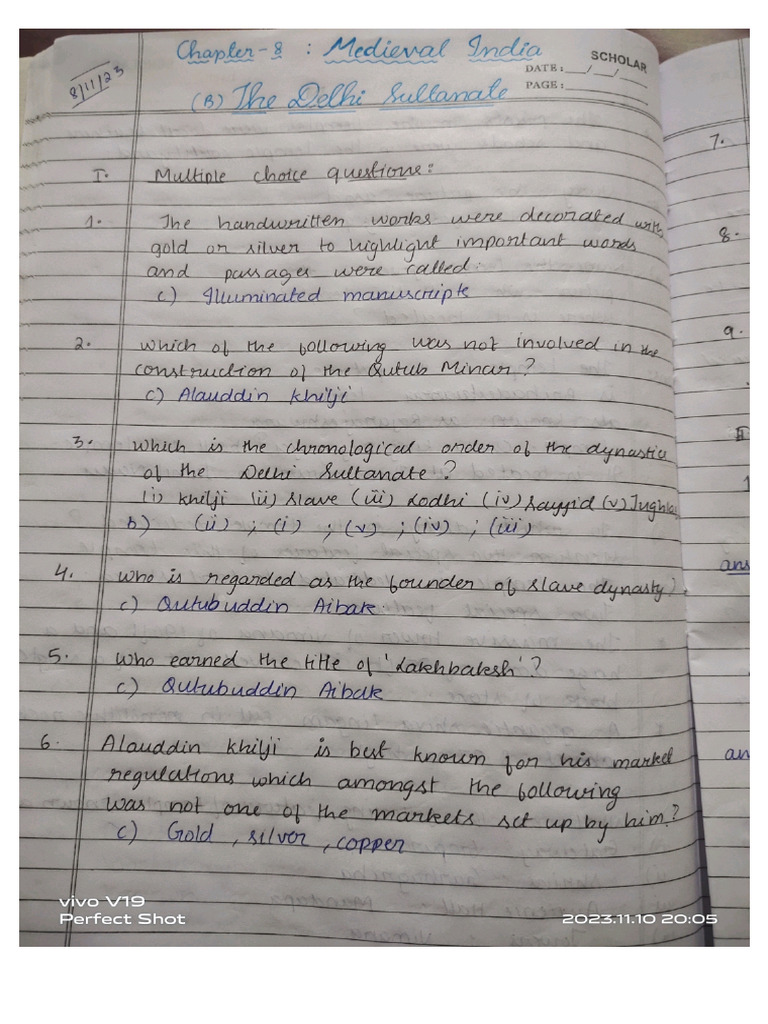 Chapter-8 : Medieval India
SCHOLAR
DATE: __/__/__
8/11/23
(B) The Delhi Sultanate
PAGE:
I. Multiple choice questions:
1. The handwritten works were decorated with
gold or silver to highlight important words
and passages were called:
c) Illuminated manuscripts
2. Which of the following was not involved in the
construction of the Qutub Minar?
c) Alauddin Khilji
3. Which is the chronological order of the dynastic
of the Delhi Sultanate?
(i) Khilji (ii) Slave (iii) Lodhi (iv) Sayyid (v) Tughlaq
b) (ii) ; (i) ; (v) ; (iv) ; (iii)
4. Who is regarded as the founder of slave dynasty?
c) Qutubuddin Aibak
5. Who earned the title of 'Lakhbaksh'?
c) Qutubuddin Aibak
6. Alauddin Khilji is best known for his market
regulations which amongst the following
was not one of the markets set up by him?
c) Gold , silver , copper
7.
8.
9.
II
1
ans
an
vivo V19
Perfect Shot
2023.11.10 20:05